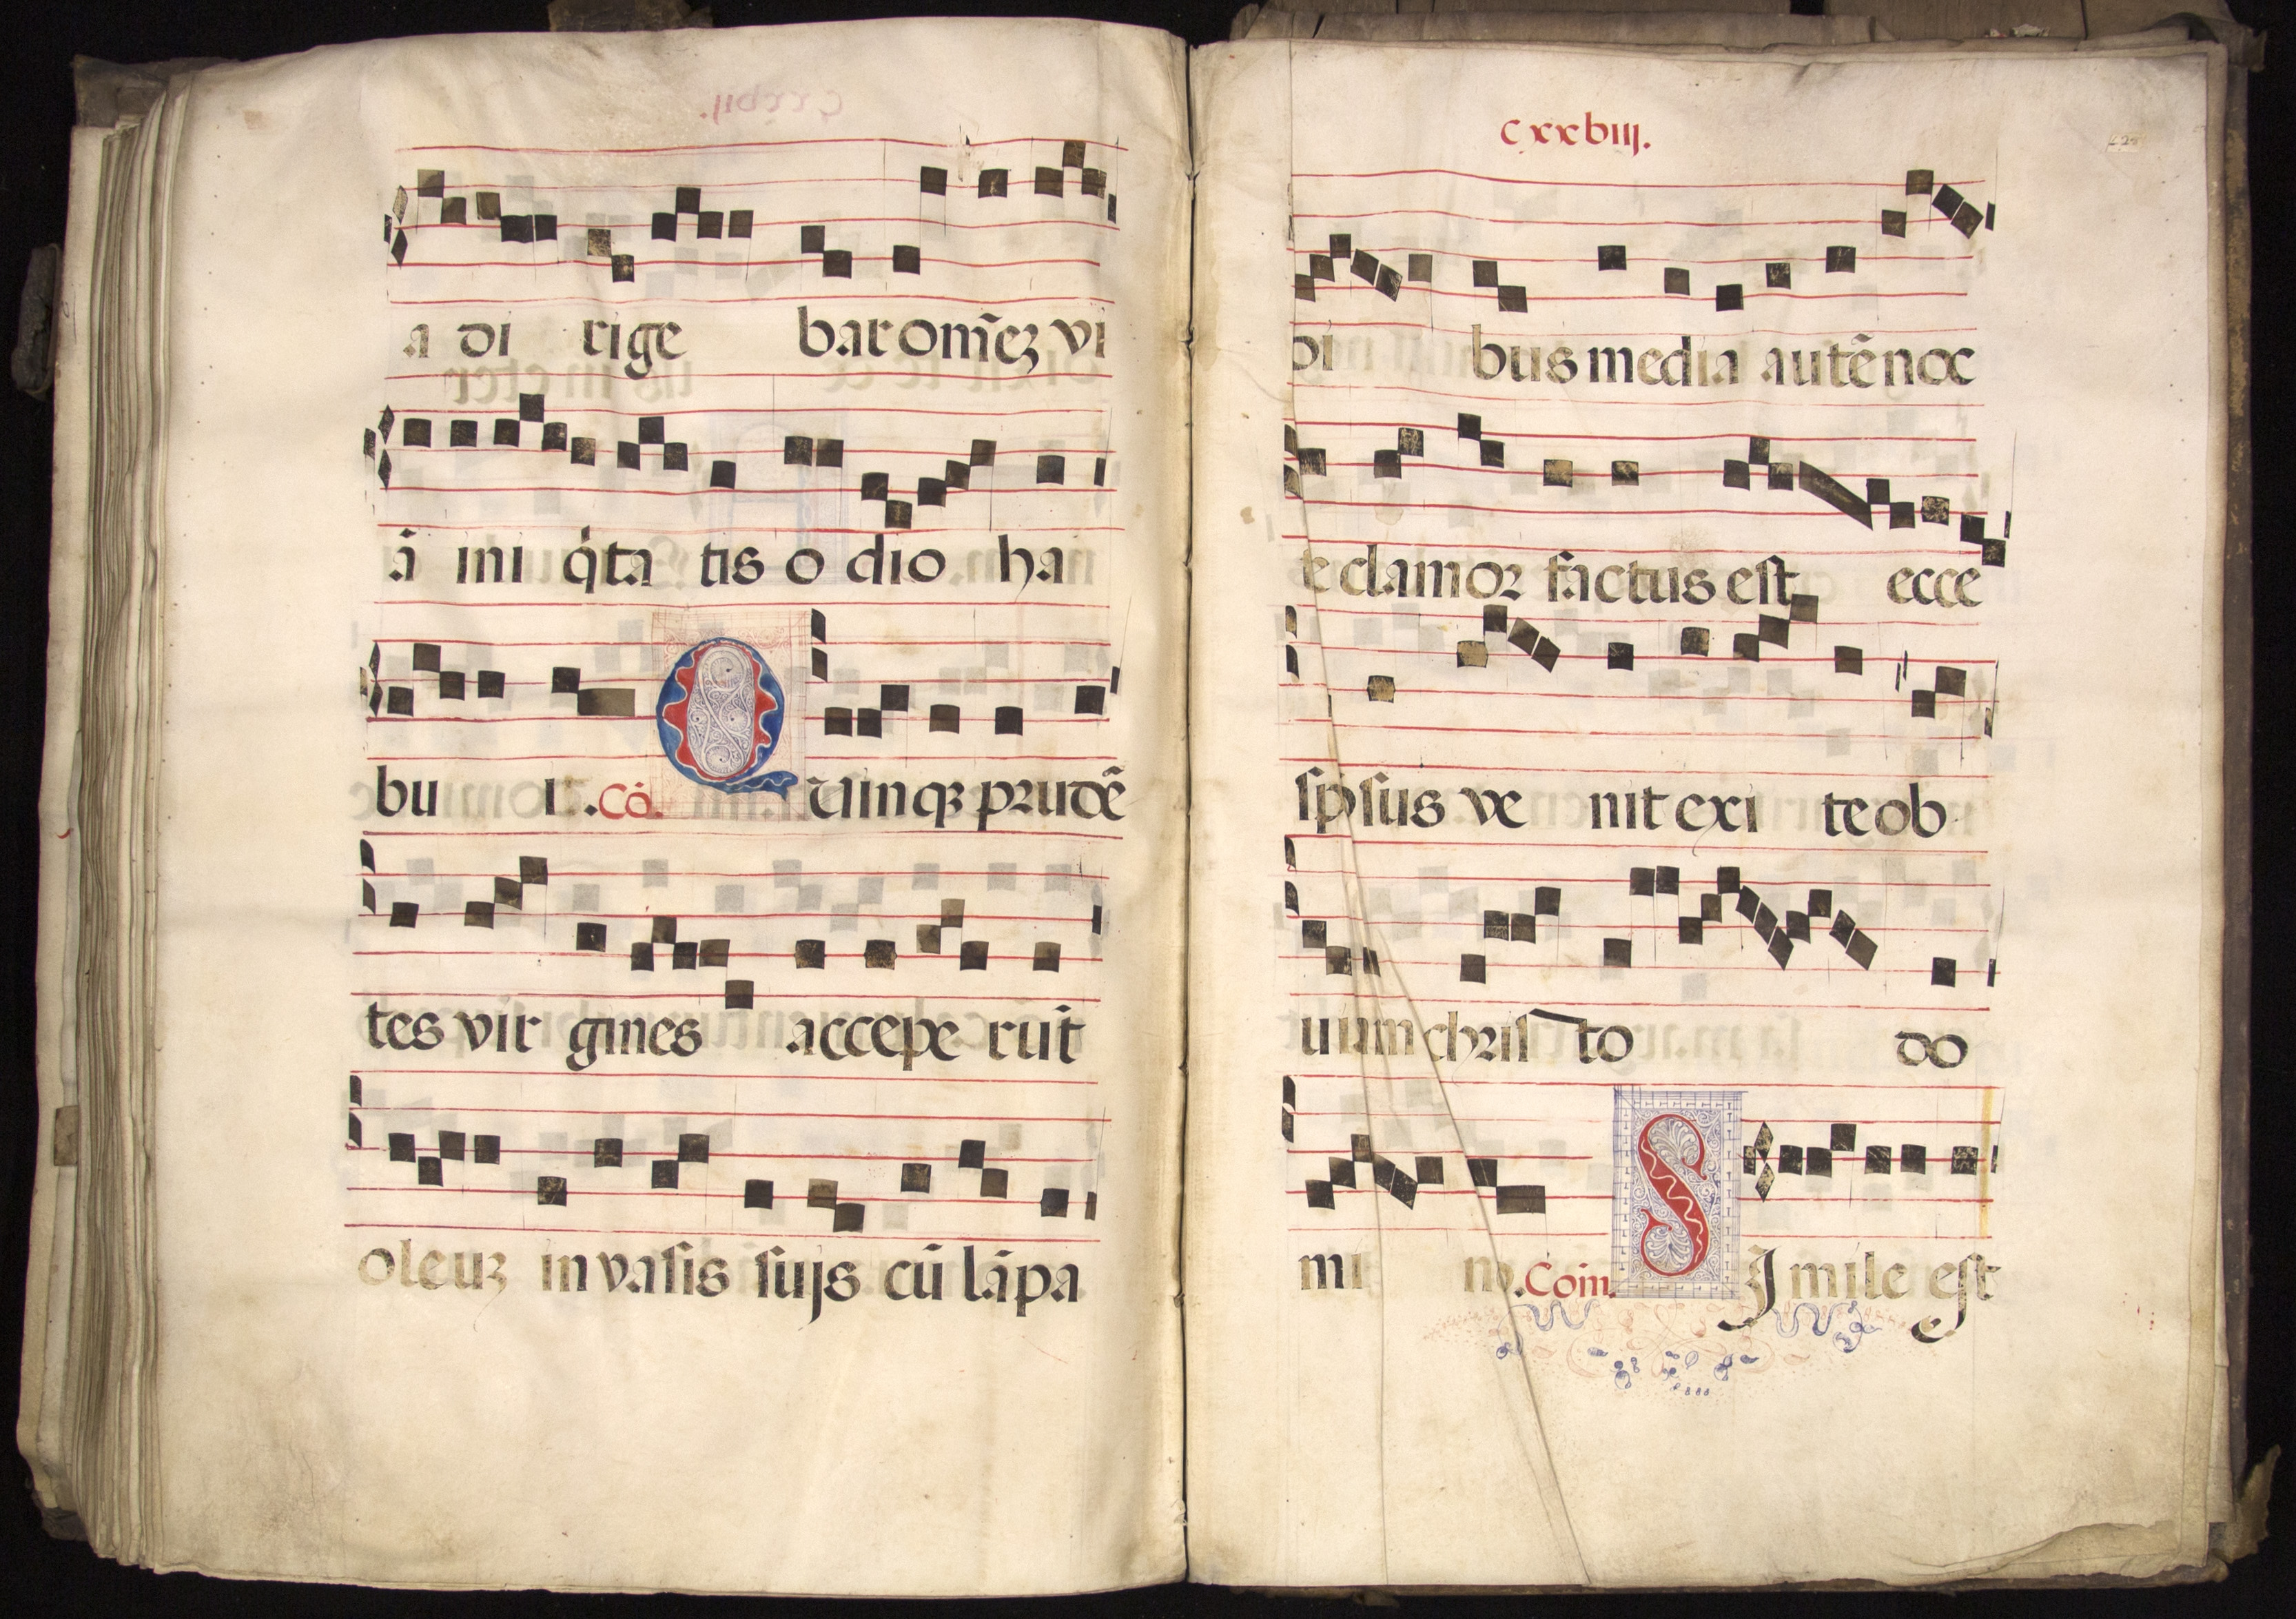 a di rige bar om̄eꝫ vi
ā ini q̇ta tis o dio ha
bu i .Cō. Q Uinqꝫ prudē
tes vir gines accepe rūt
oleuꝫ in vasis suijs cū lāpa
cxxbiij.
di bus media autē noc
te clamor factus est ecce
spōsus ve nit exi te ob
uiam chris to do
mi no .Com̄. S J mile est